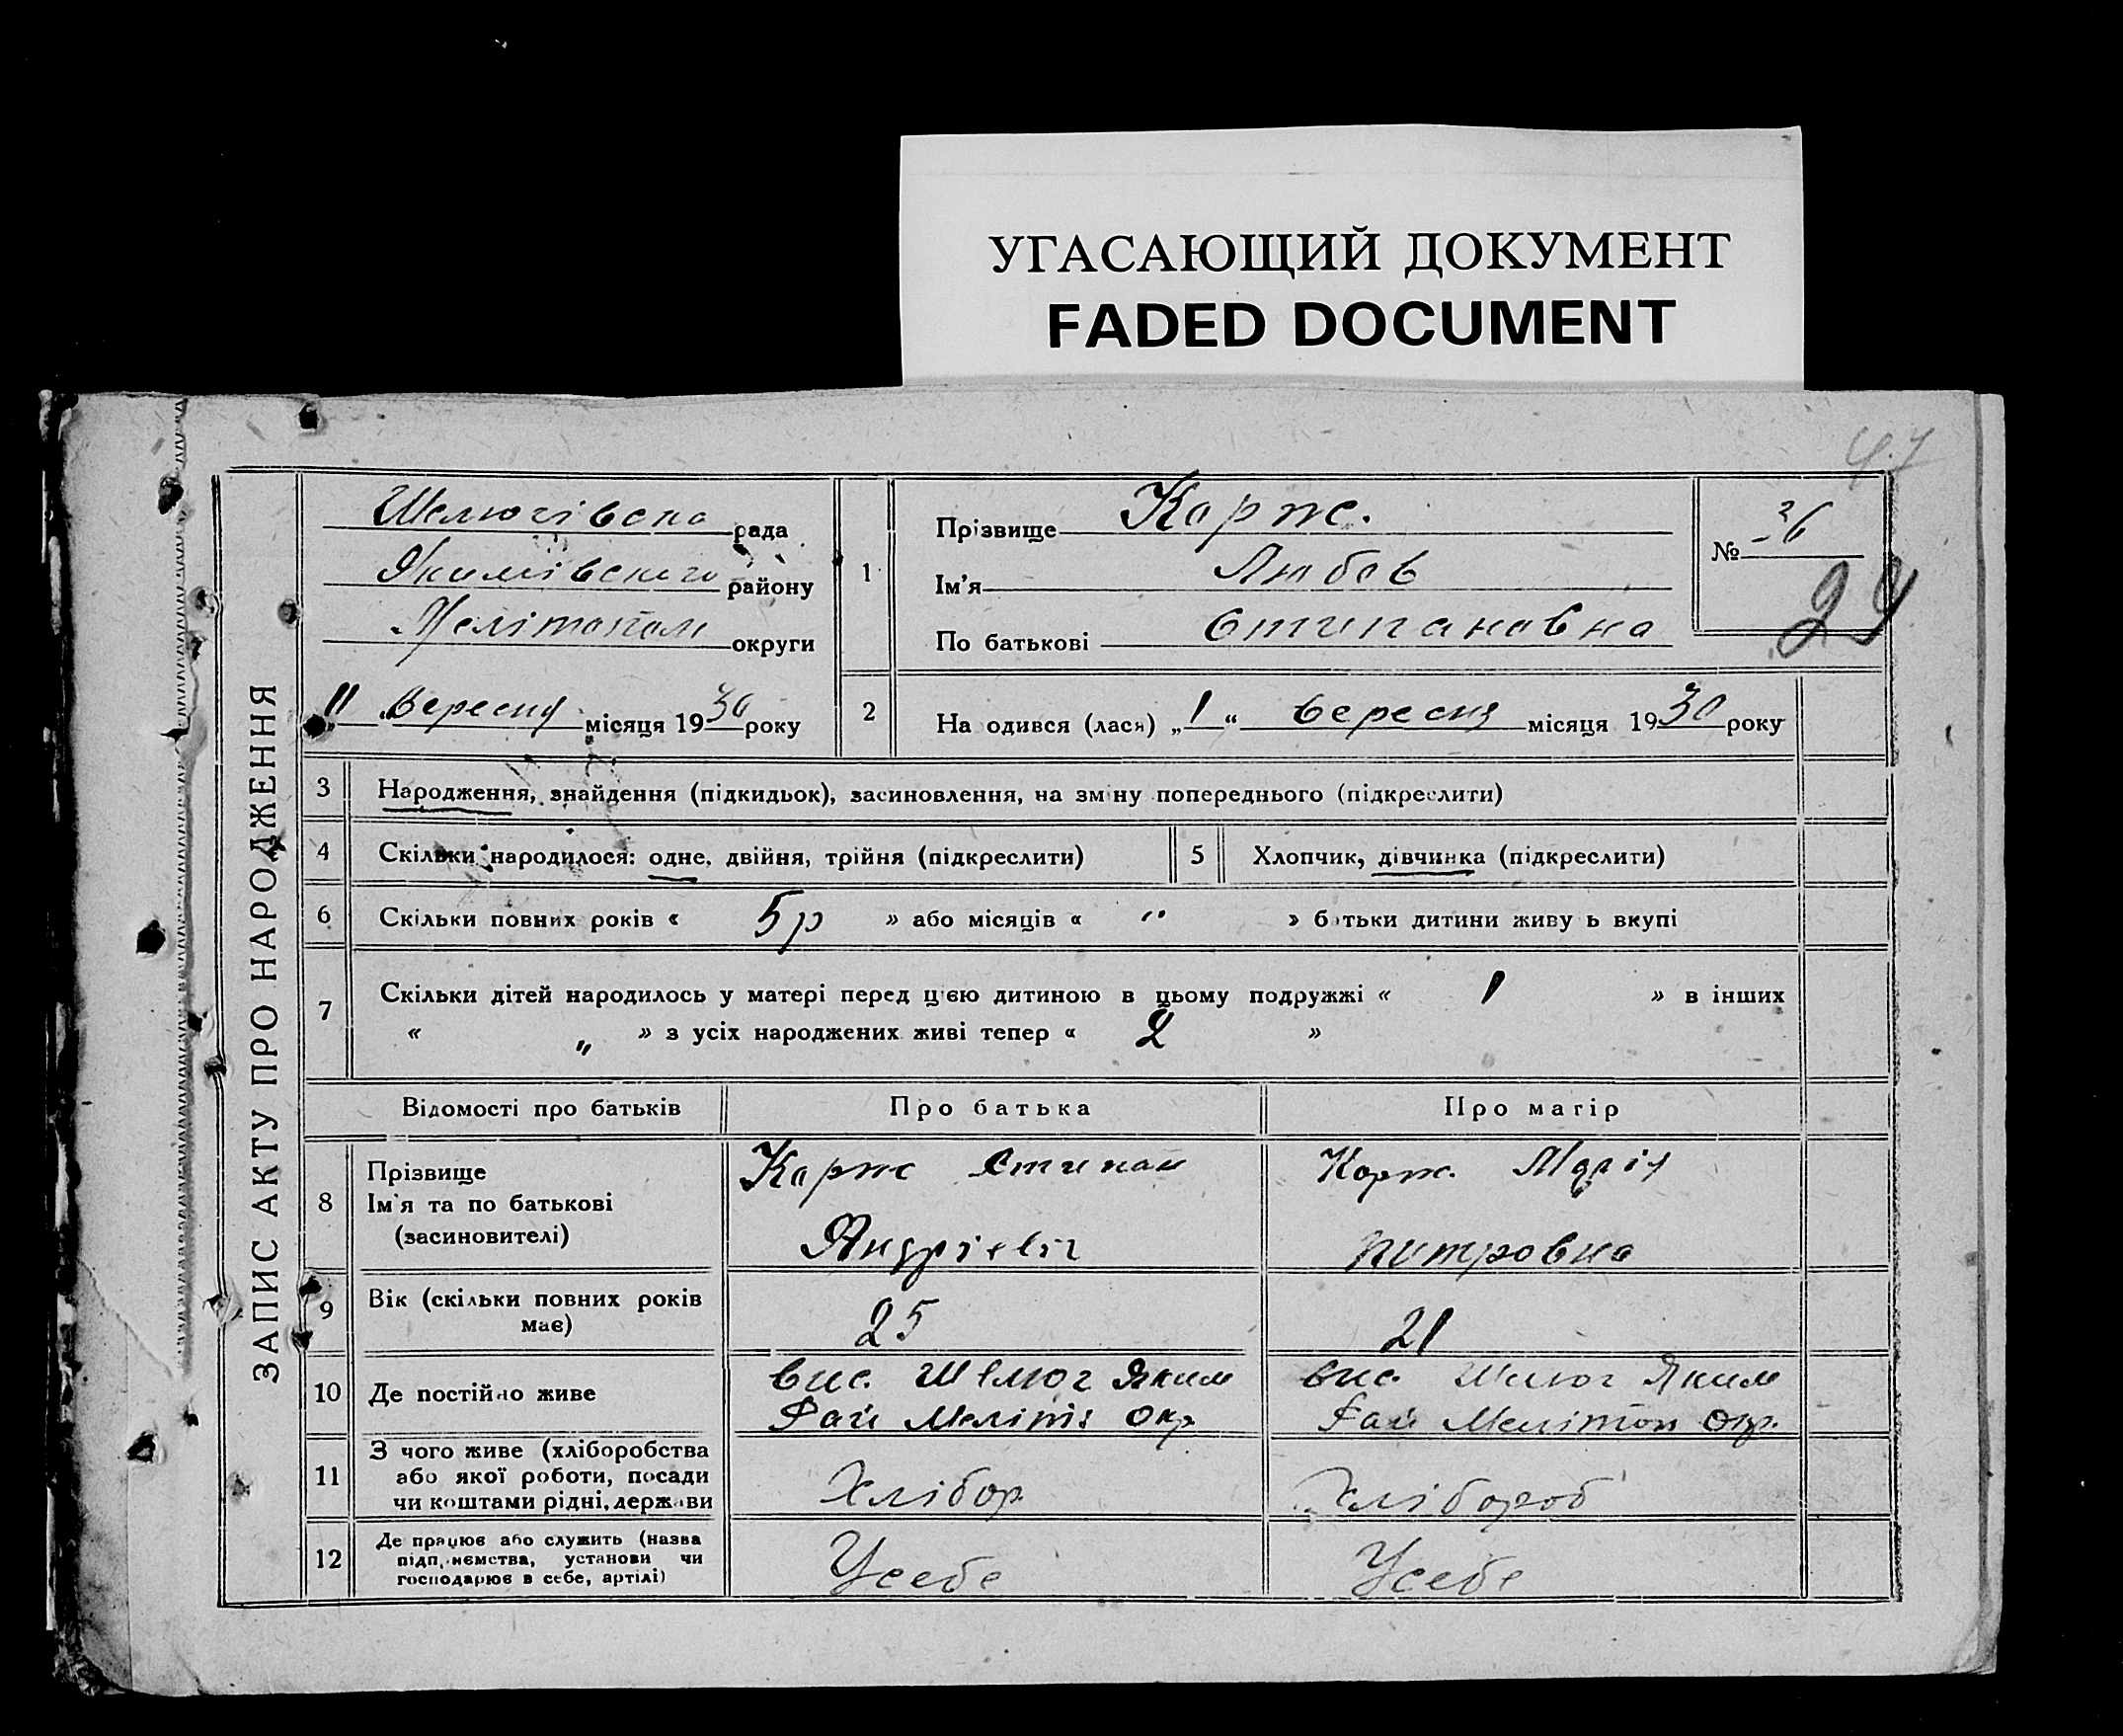 УГАСАЮЩИЙ ДОКУМЕНТ
FADED DOCUMENT
ЗАПИС АКТУ ПРО НАРОДЖЕННЯ
Шелюгівська рада
Якимівского району
Мелітопол округи
" Вересня місяця 1930 року
1
Прізвище Корж.
Ім'я Любов
По батькові Стипановна
№ 26
29
2 На одився (лася) „1“ Вересня місяця 1930 року
3 Народження, знайдення (підкидьок), засиновлення, на зміну попереднього (підкреслити)
4 Скільки народилося: одне, двійня, трійня (підкреслити) 5 Хлопчик, дівчинка (підкреслити)
6 Скільки повних років « 5р » або місяців « " » батьки дитини живу ь вкупі
7 Скільки дітей народилось у матері перед цією дитиною в цьому подружжі « 1 » в інших
« „ » з усіх народжених живі тепер « 2 »
Відомості про батьків Про батька Про матір
8 Прізвище
Ім'я та по батькові
(засиновителі)
Корж Стипан
Яндрієвіч
Корж. Марія
Питровна
9 Вік (скільки повних років
має)
25
21
10 Де постійно живе
вис. Шелюг Яким
Рай Меліт Окр
вис. Шелюг Яким
Рай Мелітоп Окр.
11 З чого живе (хліборобства
або якої роботи, посади
чи коштами рідні, держави
Хлібор
Хлібороб
12 Де працює або служить (назва
підприємства, установи чи
господарює в себе, артілі)
Усебе
Усебе